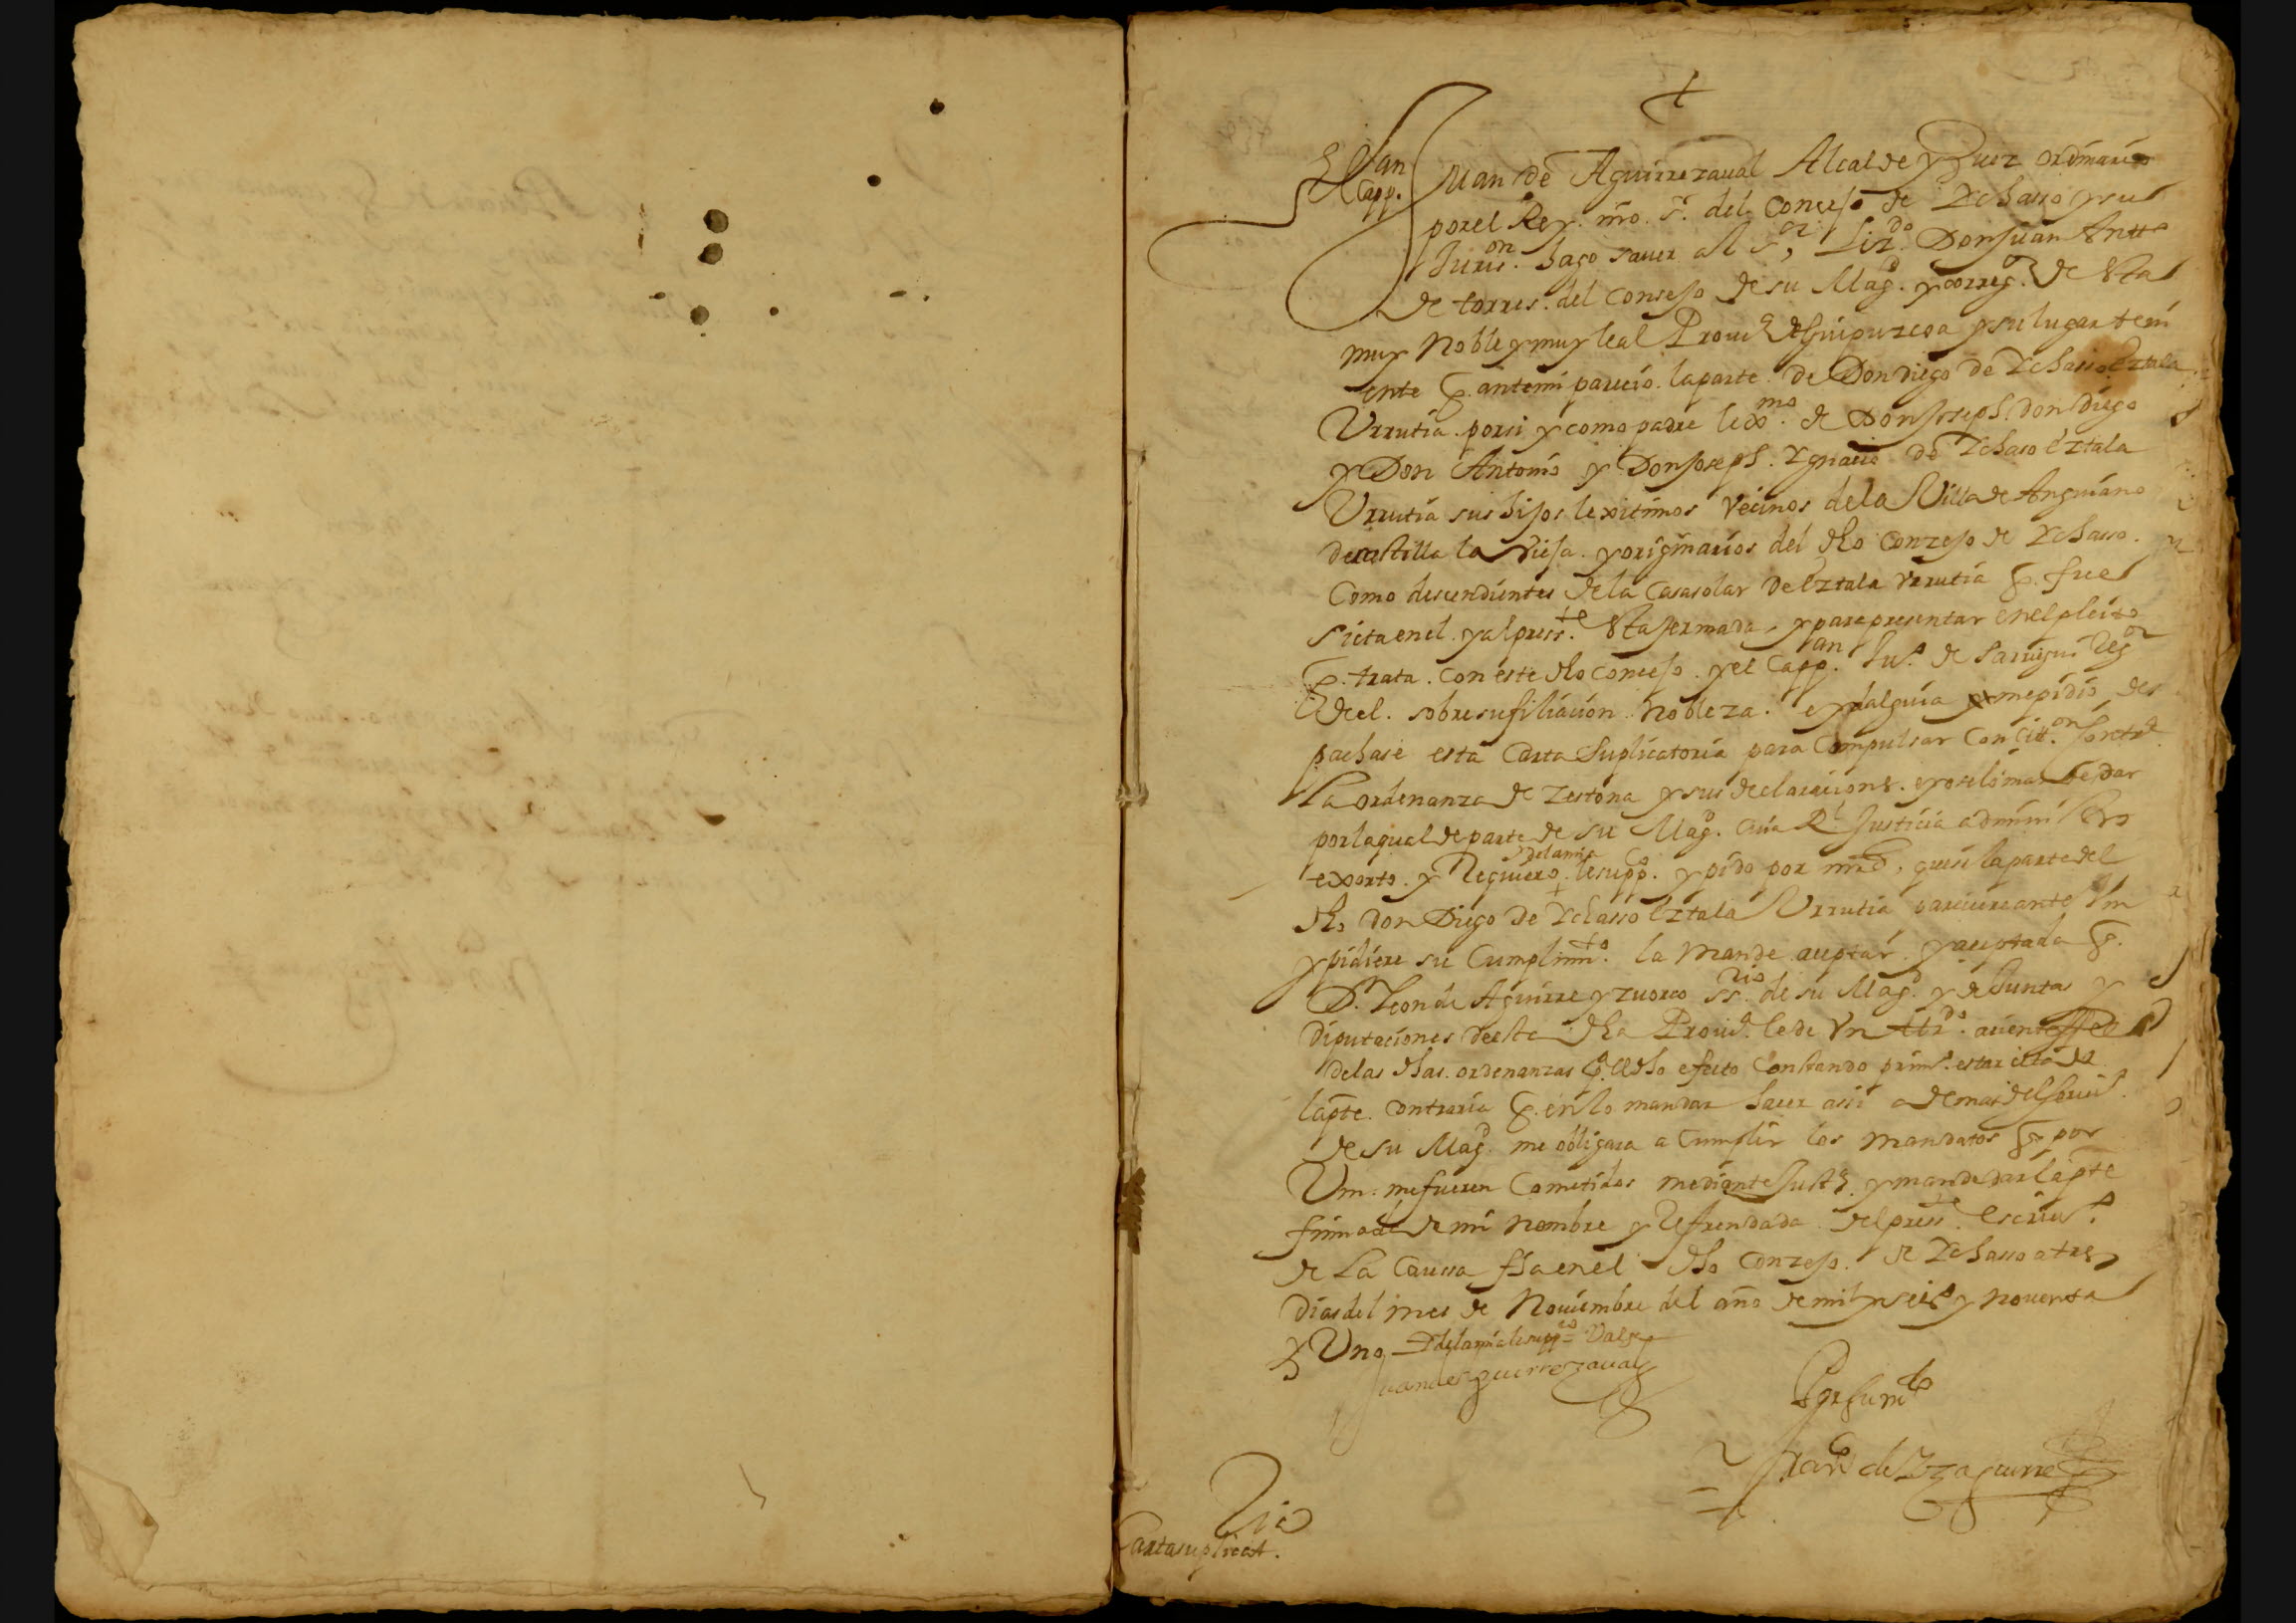 +
El Cappan Juan de Aguirrezaual Alcalde y Juez ordinario
por el Rey nro. sr. del Concejo de Ychasso y su
Jurison. hago sauer al sor. Lizdo. Don Juan Antto
de torres. del Consejo de su Magd. y correg.or de esta
muy Noble y muy leal Prouª de Guipuzcoa y su lugar teni
ente q. ante mi parecio. la parte. de Don diego de Ychasso Eztala
Urrutia. por si y como padre lexmo. de Don Joseph. don diego
y Don Antonio y Don Joseph. Ygnacio de Ychaso Eztala
Urrutia sus hijos lexitimos Vecinos de la Villa de Anguiano
de castilla la Vieja. y originarios del dho Conzejo de Ychasso.
Como descendientes de la Casa solar de Eztala Vrrutia q. fue
sieta en el. y al presste. esta yermada. y para presentar en el pleito
q. trata. Con este dho Concejo. y el Cappan. Juº. de Regor
de el. sobre su filiacion Nobleza. e ydalguia me pidio des
pachase esta Carta Suplicatoria para Compulsar Con Citton.
la ordenanza de Zestona y sus declaraciones. e yo se lo mande dar
por la qual de parte de su Magd. Cuia Rl. Justicia administro
exorto. y Requiero y de la mia le suppco. y pido por mrd, que si la parte del
dho don Diego de Ychasso Eztala Urrutia pareciere ante Vm
y pidiere su Cumplimto. la Mande aceptar y aceptada q.
D. Leon de Aguirre y Zuorco ssrio. de su Magd. y de Juntas y
Diputaciones de esta dha Prouª le de Vn
de las dhas. ordenanzas p. el dho efecto Constando prim.º estar citada
la pte. Contraria q. en lo mandar hacer assi a demas del
de su Magd. me obligara a Cumplir los Mandatos q. por
Vm. me fueren Cometidos mediante Justª. y mande dar la pte
firmada de mi Nombre y Refrendada del presste. escriuº.
de La Caussa fha en el dho Conzejo. de Ychasso a tres
dias del mes de Nouiembre del año de mil y seisº y nouenta
y Uno = y de la mia le suppco = Valga
Juan de Aguirrezaual
Por su mdo
Franco de Yzaguirre
Carta suplicat.